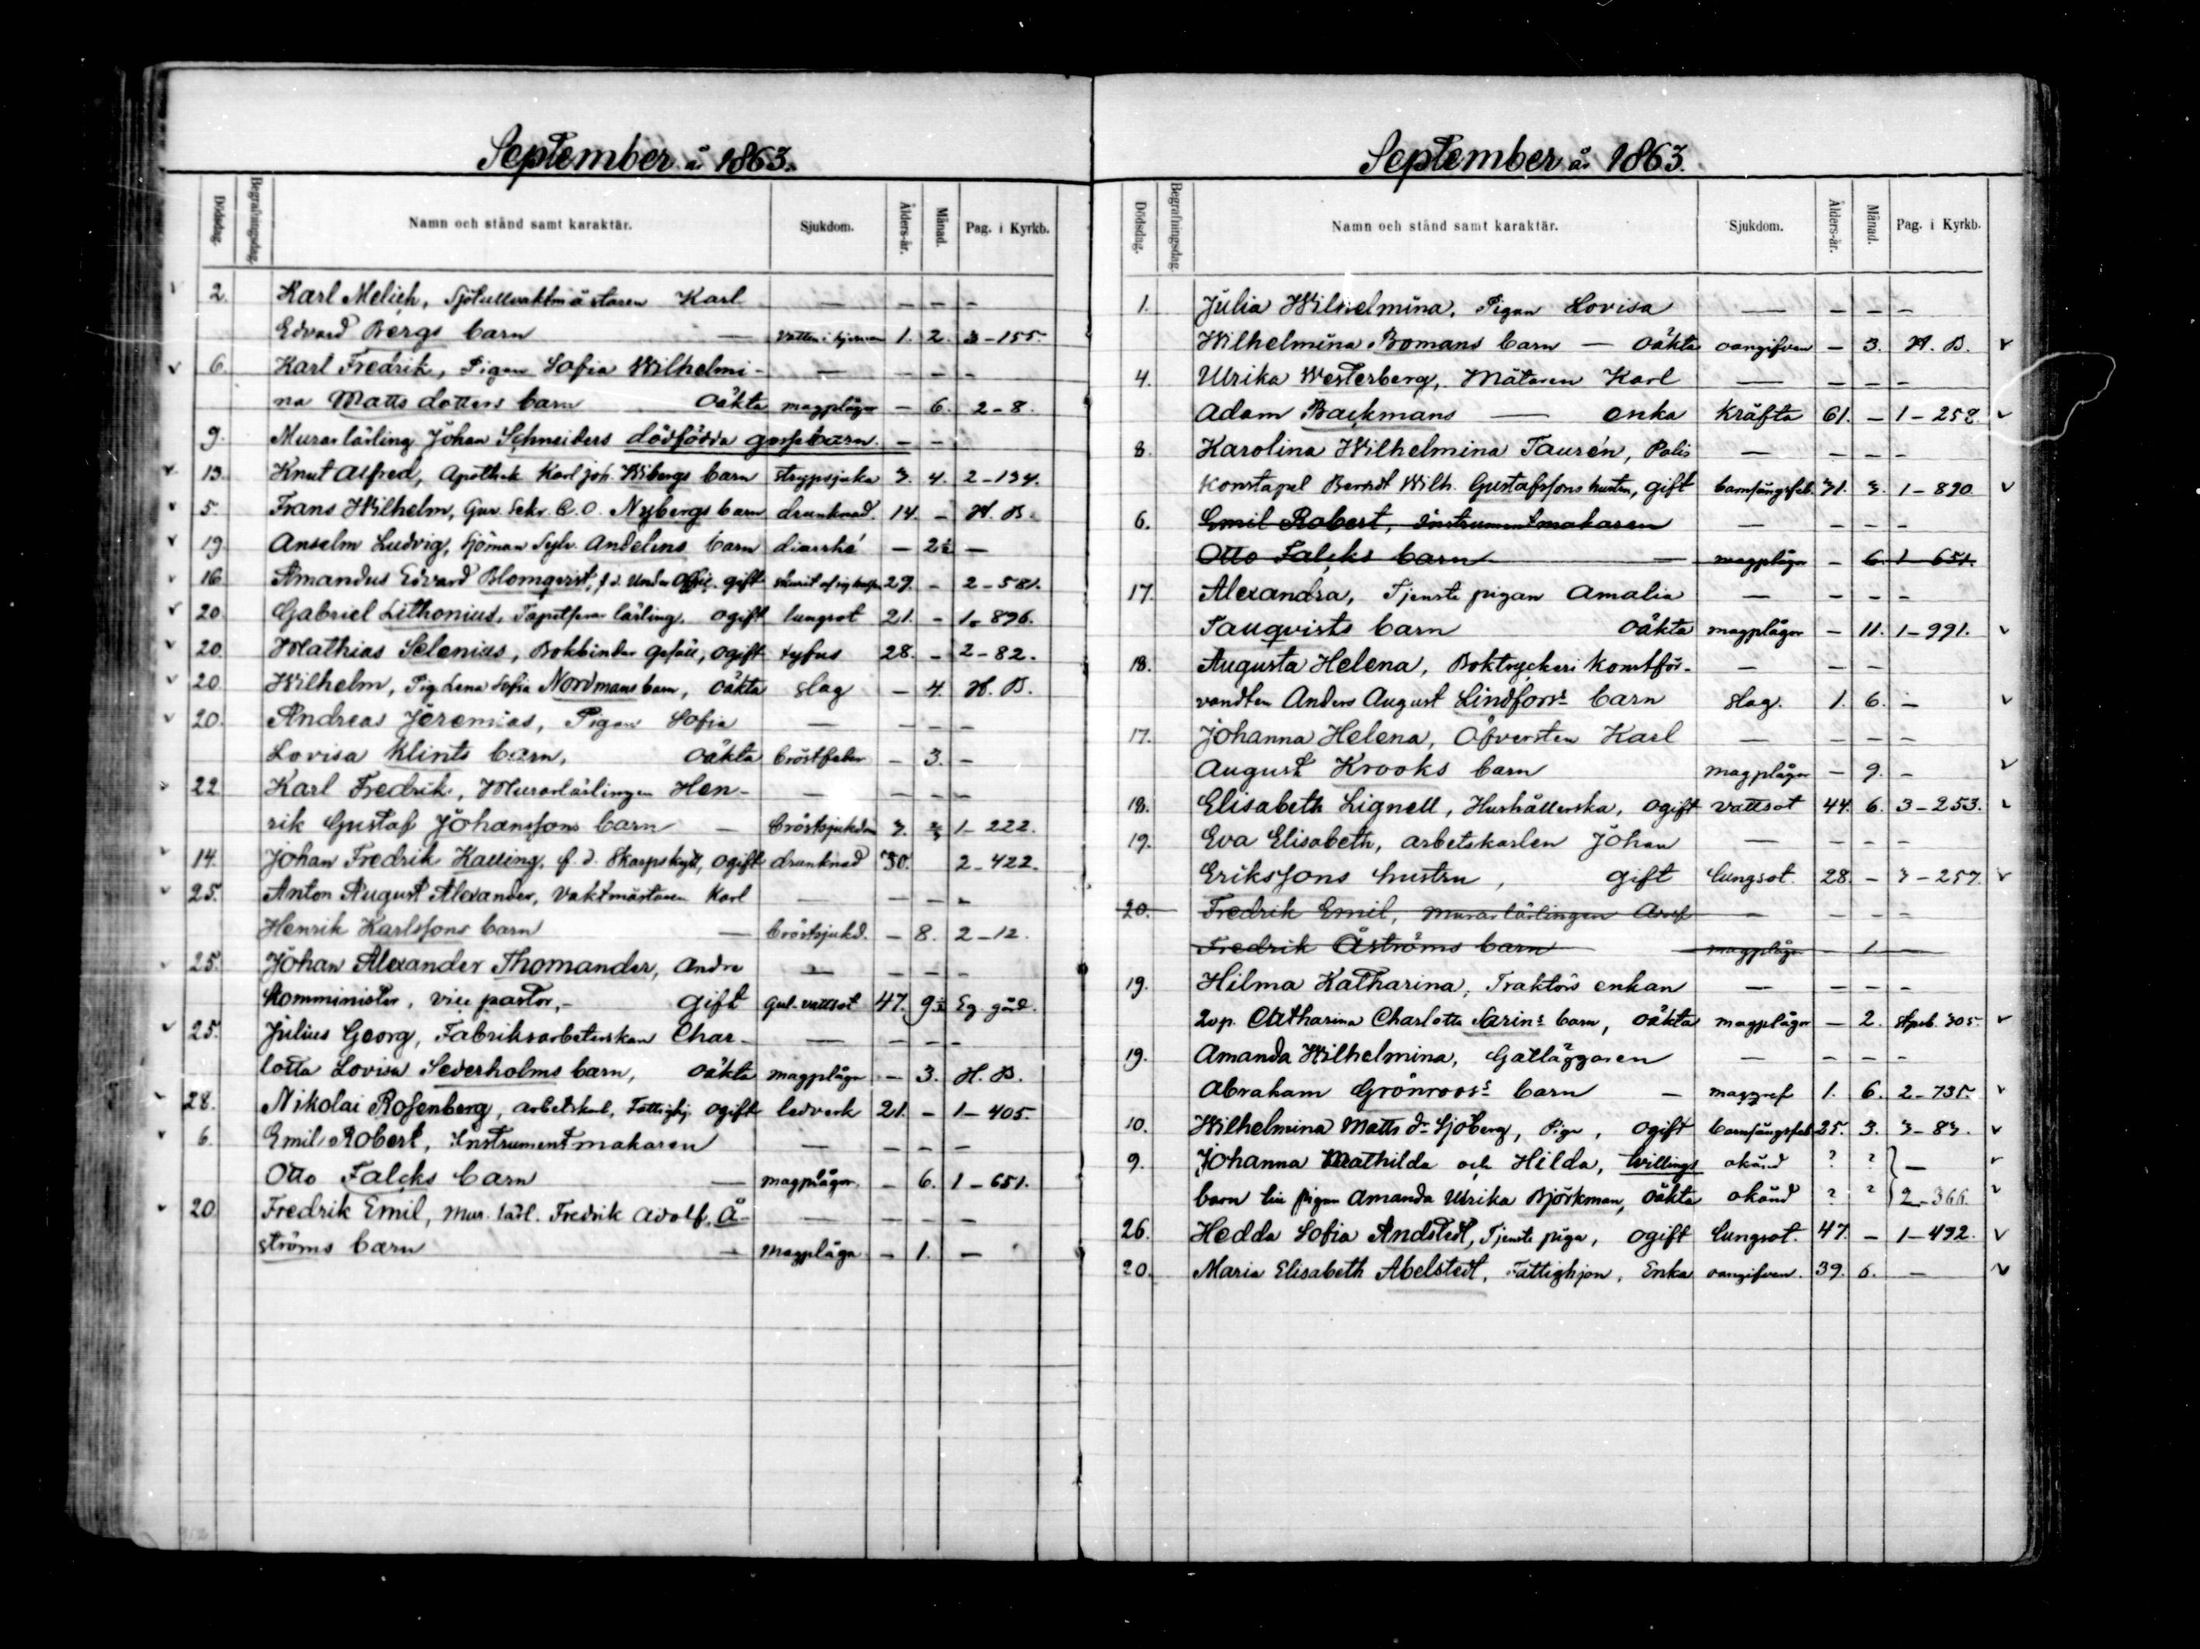 September år 1863.
Dödsdag. Begrafningsdag. Namn och stånd samt karaktär. Sjukdom. Ålders-år. Månad. Pag. i Kyrkb.
2. Karl Melich, Sjötullvaktmästaren Karl — — — —
Edvard Bergs barn — Vatten i hjernan 1. 2. 3-155.
6. Karl Fredrik, Pigan Sofia Wilhelmi- — — — —
na Mattsdotters barn Oäkta magplågor — 6. 2-8.
9. Murarlärling Johan Schneiders dödfödda gossebarn. — —
13. Knut Alfred, Apothek. Karl Joh. Wibergs barn strypsjuka 3. 4. 2-134.
5. Frans Wilhelm, Guv. Sekr. C. O. Nybergs barn drunknad. 14. — H. B.
19. Anselm Ludvig, Sjöman Sylv. Andelins barn diarrhé — 2½ —
16. Amandus Edvard Blomqvist, f. d. Under Offic. gift skurit af sig halsen 29. — 2-581.
20. Gabriel Lithonius, Tapetserar lärling, ogift lungsot 21. — 1-896.
20. Mathias Selenius, Bokbindar gesäll, ogift tyfus 28. — 2-82.
20. Wilhelm, Pig. Lena Sofia Nordmans barn, oäkta slag — 4. H. B.
20. Andreas Jeremias, Pigan Sofia — — — —
Lovisa Klints barn, oäkta bröstfeber — 3. —
22. Karl Fredrik, Murarlärlingen Hen- — — — —
rik Gustaf Johanssons barn — bröstsjukdom 3. 1-222.
14. Johan Fredrik Kalling, f. d. Skarpskytt, ogift drunknad 30. 2-422.
25. Anton August Alexander, Vaktmästaren Karl — — — —
Henrik Karlssons barn — bröstsjukd. — 8. 2-12.
25. Johan Alexander Thomander, Andre — — — —
Komminister, vice pastor, — gift Gul. vattsot 47. 9½ Eg. gård.
25. Julius Georg, Fabriksarbeterskan Char- — — — —
lotta Lovisa Sederholms barn, oäkta magplågor — 3. H. B.
28. Nikolai Rosenberg, arbetskarl, Fattighj. ogift ledverk 21. — 1-405.
6. Emil Robert, Instrumentmakaren — — — —
Otto Falcks barn — magplågor. — 6. 1-651.
20. Fredrik Emil, Mur. lärl. Fredrik Adolf Å- — — — —
ströms barn — magplågor — 1. —
September år 1863.
Dödsdag. Begrafningsdag. Namn och stånd samt karaktär. Sjukdom. Ålders-år. Månad. Pag. i Kyrkb.
1. Julia Wilhelmina, Pigan Lovisa — — — —
Wilhelmina Bomans barn — oäkta oangifven — 3. H. B.
4. Ulrika Westerberg, Mätaren Karl — — — —
Adam Backmans — enka Kräfta 61. — 1-258.
8. Karolina Wilhelmina Taurén, Polis — — — —
Konstapel Berndt Wilh. Gustafssons hustru, gift barnsängsfeb. 31. 3. 1-890
6. Emil Robert, Instrumentmakaren — — — —
Otto Falcks barn — magplågor — 6. 1-651.
17. Alexandra, Tjenste pigan Amalia — — — —
Tauqvists barn oäkta magplågor — 11. 1-991.
18. Augusta Helena, Boktryckeri Konstför- — — —
vandten Anders August Lindfors's barn slag. 1. 6. —
17. Johanna Helena, Öfversten Karl — — — —
August Krooks barn magplågor — 9. —
18. Elisabeth Lignell, Hushållerska, ogift Vattsot 44. 6. 3-253.
19. Eva Elisabeth, arbetskarlen Johan — — — —
Erikssons hustru, gift lungsot. 28. — 3-257.
20. Fredrik Emil, Murarlärlingen Adolf — — — —
Fredrik Åströms barn magplågor — 1. —
19. Hilma Katharina, Traktörs enkan — — — —
Catharina Charlotta Sarins barn, oäkta magplågor — 2. 305.
19. Amanda Wilhelmina, Gatläggaren — — — —
Abraham Grönroos's barn — magref 1. 6. 2-735.
10. Wilhelmina Matts dr Sjöberg, Piga, ogift barnsängsfeb 25. 3. 3-83.
9. Johanna Mathilda och Hilda, tvillings okänd ? ? —
barn till pigan Amanda Ulrika Björkman, oäkta okänd ? ? 2-366.
26. Hedda Sofia Andstedt, Tjenste piga, ogift lungsot. 47. — 1-492.
20. Maria Elisabeth Abelstedt, Fattighjon, Enka oangifven. 39. 6. —